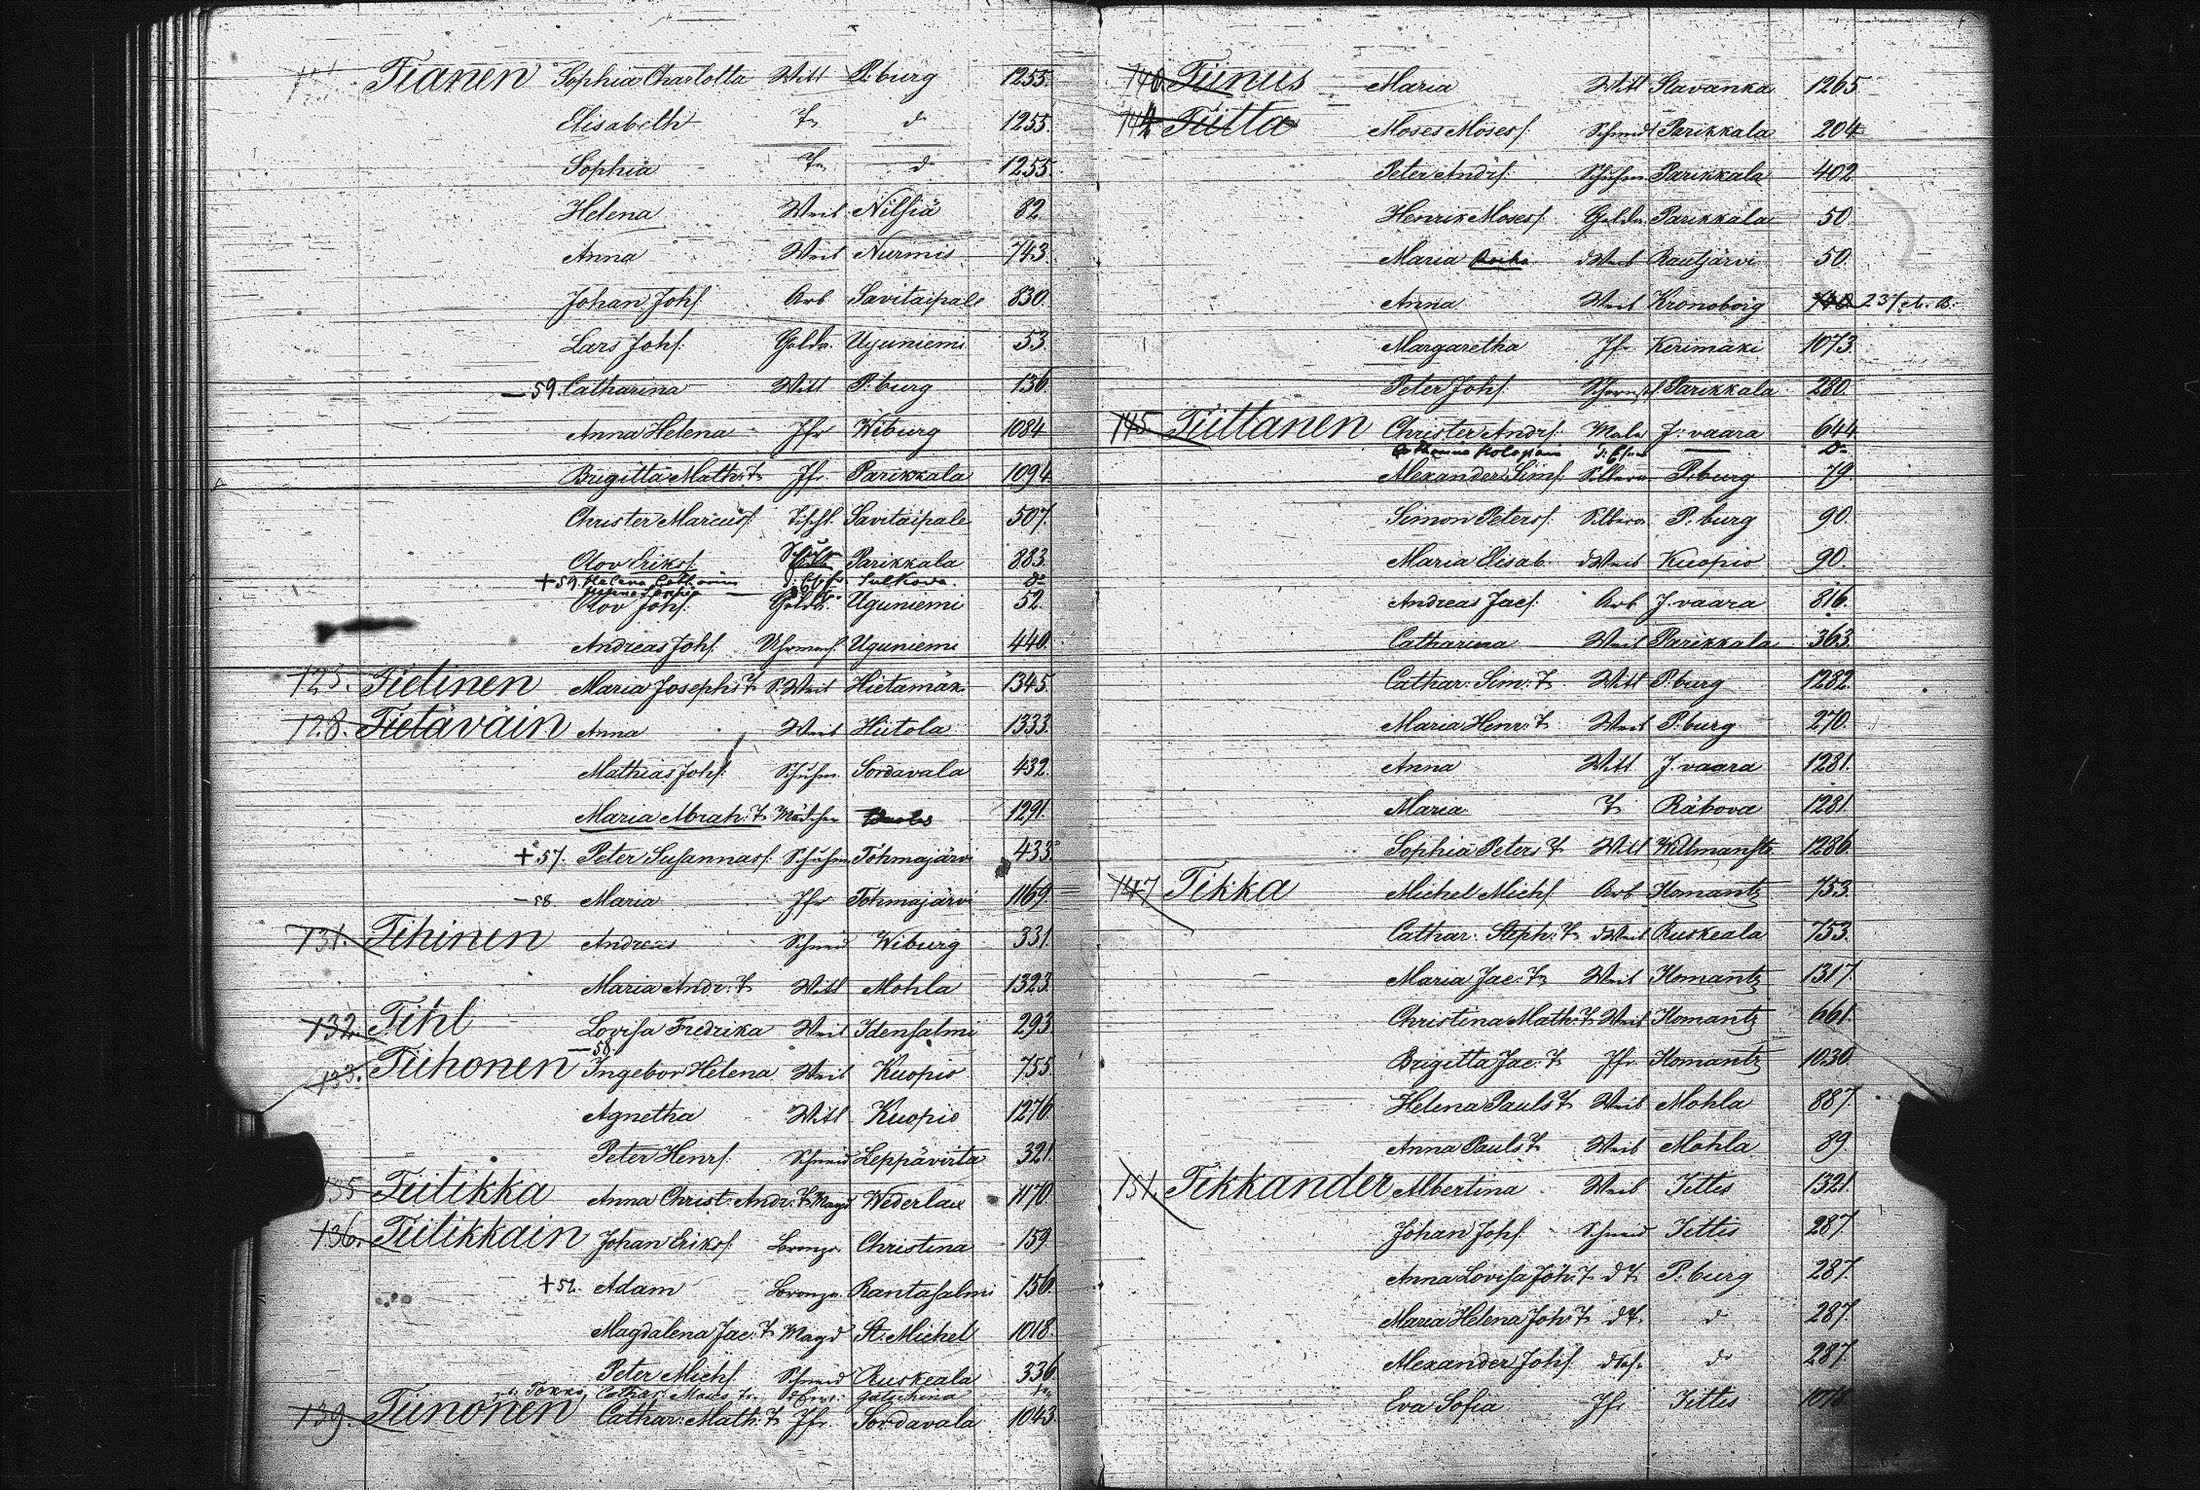 Tianen Sophia Charlotta Witt P.burg 1255.
Elisabeth Tr d 1255.
Sophia Tr d 1255.
Helena Weib Nilsiä 82.
Anna Weib Nurmis 743.
Johan Johs. Arb Savitaipale 830.
Lars Johs. Golda. Uguniemi 53.
– 59. Catharina Witt P.burg 136
Anna Helena Jfr Wiburg 1084
Brigitta Math: T. Jfr. Parikkala 1094.
Christer Marcuss. Tischl. Savitaipale 507.
Olov Eriks. Parikkala 883.
+ 59. Helena Catharina Sulkova. do
Olov Johs. Golda. Uguniemi 52.
Andreas Johs. Uhrmach. Uguniemi 440.
125. Tielinen Maria Josephs T. S. Weib Hietamäki 1345.
128. Tietäväin Anna Weib Hiitola 1333.
Mathias Johs. Schuhm. Sordavala 432.
Maria Abrah: T. Mädchen 1291.
+ 57. Peter Susannas. Schuhm Tohmajärvi 433.
– 58 Maria Jfr Tohmajärvi 1169.
131. Tihinen Andreas Schneid Wiburg 331.
Maria Andr: T. Witt Mohla 1323.
132. Tihl Lovisa Fredrika Weib Idensalmi 293.
– 58.
133. Tiihonen Ingebor Helena Weib Kuopio 755.
Agnetha Witt Kuopio 1276
Peter Henrs. Schneid Leppävirta 321.
135 Tiilikka Anna Christ: Andr: T. Magd Wederlax 1170
136. Tiilikkain Johan Eriks. Bronza. Christina 159
+ 52. Adam Bronza. Rantasalmi 156.
Magdalena Jac: T. Magd St. Michel 1018.
Peter Michs. Schneid Ruskeala 336.
Cathar. Gatschina
139. Tiinonen Cathar: Math: T. Jfr. Sordavala 1043.
140. Tiinus Maria Witt Slavanka 1265
142 Tiitta Moses Moses. Schmid Parikkala 204.
Peter Andrs. Schuhm Parikkala 402.
Henrik Moses. Golda Parikkala 50.
Maria d Weib Rautjärvi 50.
Anna Weib Kronoborg 237 A. B.
Margaretha Jfr Kerimäki 1073.
Peter Johs. Parikkala 280.
145. Tiittanen Christer Andrs. Mala J:vaara 644
do
Alexander Sims. Silbera P.burg 79.
Simon Peters. Silbera P.burg 90.
Maria Elisab. d Weib Kuopio 90.
Andreas Jacs. Arb J.vaara 816.
Catharina Weib Parikkala 363.
Cathar: Sim: T. Witt P.burg 1282.
Maria Henr: T. Weib P.burg 270.
Anna Witt J.vaara 1281.
Maria T. Räbova 1281.
Sophia Peters T. Witt Willmanst. 1286.
147 Tikka Michel Michs. Arb Ilomantz 753.
Cathar. Steph: T. d Weib Ruskeala 753.
Maria Jac: T. Weib Ilomantz 1317.
Christina Math: T. Weib Ilomantz 661.
Brigitta Jac: T. Jfr Ilomantz 1030.
Helena Pauls T. Weib Mohla 887.
Anna Pauls T. Weib Mohla 89
151. Tikkander Albertina Weib Ittis 1321.
Johan Johs. Schneid Ittis 287.
Anna Lovisa Joh: T. d T. P.burg 287.
Maria Helena Joh: T. d T. d 287.
Alexander Johs. d 287.
Eva Sofia Jfr Ittis